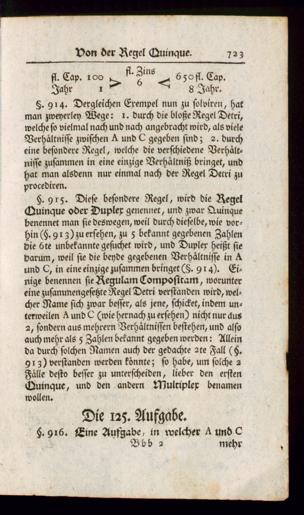 Von der Regel Quinque. 723
fl. Zins
fl. Cap. 100 > 6 < 650 fl. Cap.
Jahr 1 8 Jahr.
§. 914. Dergleichen Exempel nun zu solviren, hat
man zweyerley Wege: 1. durch die bloße Regel Detri,
welche so vielmal nach und nach angebracht wird, als viele
Verhältnisse zwischen A und C gegeben sind; 2. durch
eine besondere Regel, welche die verschiedene Verhält-
nisse zusammen in eine einzige Verhältniß bringet, und
hat man alsdenn nur einmal nach der Regel Detri zu
procediren.
§. 915. Diese besondere Regel, wird die Regel
Quinque oder Duplex genennet, und zwar Quinque
benennet man sie deswegen, weil durch dieselbe, wie vor-
hin (§. 913) zu ersehen, zu 5 bekannt gegebenen Zahlen
die 6te unbekannte gesucht wird, und Duplex heißt sie
darum, weil sie die beyde gegebenen Verhältnisse in A
und C, in eine einzige zusammen bringet (§. 914). Ei-
nige benennen sie Regulam Compositam, worunter
eine zusammengesetzte Regel Detri verstanden wird, wel-
cher Name sich zwar besser, als jene, schicket, indem un-
terweilen A und C (wie hernach zu ersehen) nicht nur aus
2, sondern aus mehrern Verhältnissen bestehen, und also
auch mehr als 5 Zahlen bekannt gegeben werden: Allein
da durch solchen Namen auch der gedachte 2te Fall (§.
913) verstanden werden könnte; so habe, um solche 2
Fälle desto besser zu unterscheiden, lieber den ersten
Quinque, und den andern Multiplex benamen
wollen.
Die 125. Aufgabe.
§. 916. Eine Aufgabe, in welcher A und C
Bbb 2 mehr